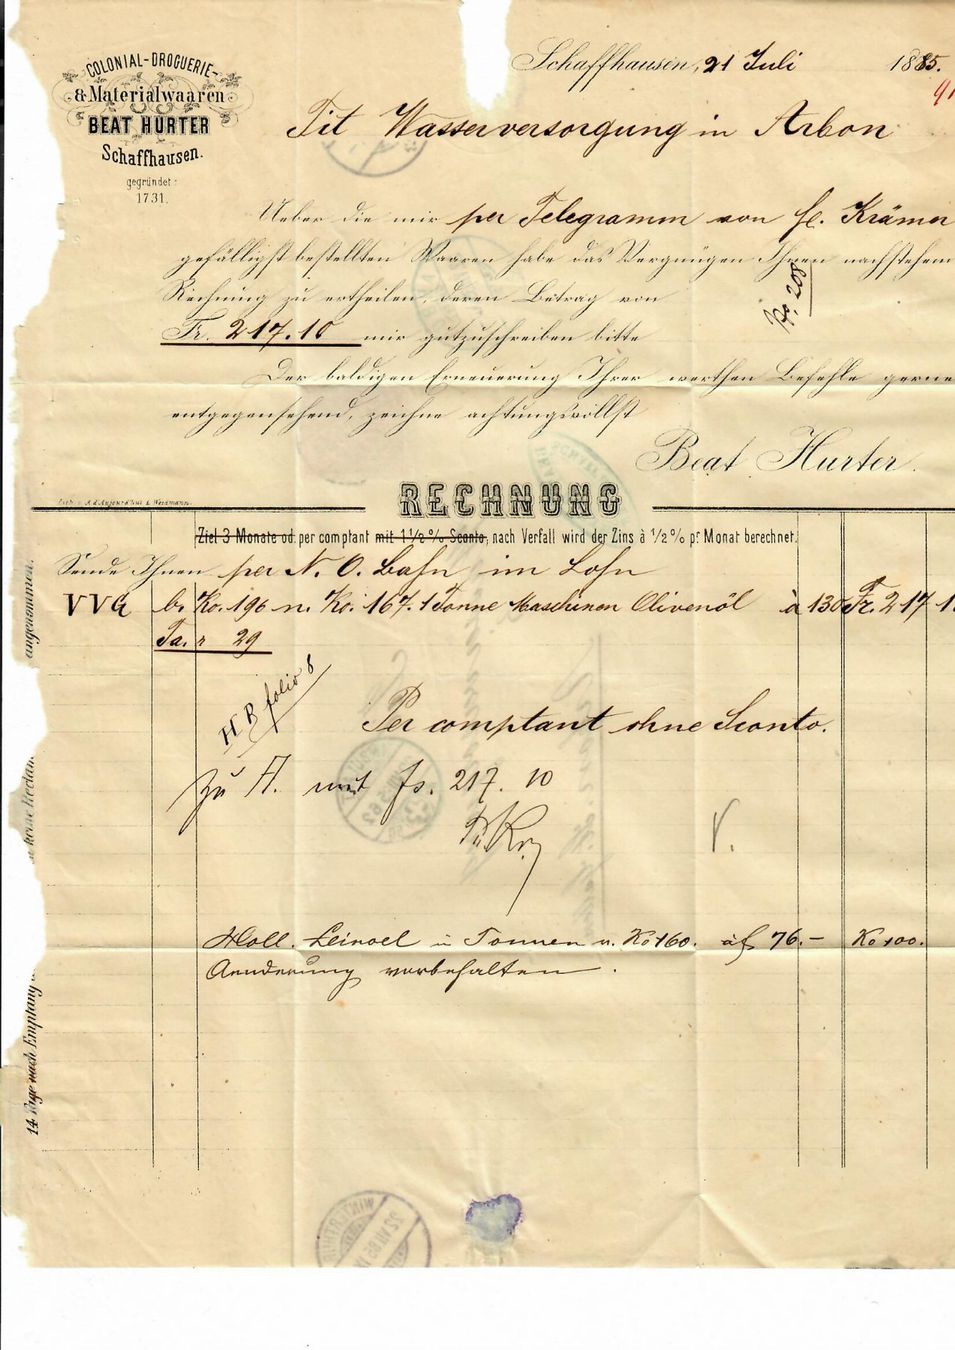 COLONIAL-DROGUERIE-
& Materialwaaren
BEAT HURTER
Schaffhausen.
gegründet:
1731.
Schaffhausen, 21 Juli 1885.
Tit Wasserversorgung in Arbon
Ueber die mir per Telegramm von Krämer
gefälligst bestellten Waaren habe das Vergnügen Ihnen nachstehend
Rechnung zu ertheilen, deren Betrag von
Fr. 217.10 mir gutzuschreiben bitte
Der baldigen Erneuerung Ihrer werthen Befehle gerne
entgegensehend, zeichne achtungsvollst
Beat Hurter.
No. 208
RECHNUNG
Ziel 3 Monate od. per comptant mit 1 1/2 % Sconto, nach Verfall wird der Zins à 1/2 % pr Monat berechnet.
Sende Ihnen per N. O. Bahn im Lohn
VVG b. Ko. 196 n. Ko. 167. 1 Tonne Maschinen Olivenöl à 130 Fr. 217 1
Ta. 29
HB folio 8
Per comptant ohne Sconto.
zu A. mit fs. 217. 10
Holl. Leinoel in Tonnen v. Ko 160. à f 76.- Ko 100.
Aenderung vorbehalten.
angenommen.
14 Tage nach Empfang keine Reclam
WINTERTHUR